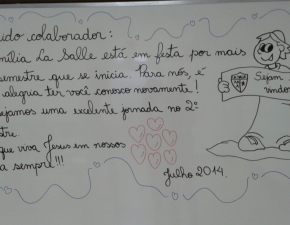 udo colaborador:
mília La Salle está em festa por mais
emestre que se inicia. Para nós, é
alegria ter você conosco novamente!
ejamos uma exelente jornada no 2º
stre.
que viva Jesus em nossos
a sempre!!!
Julho 2014.
Sejam
vindos